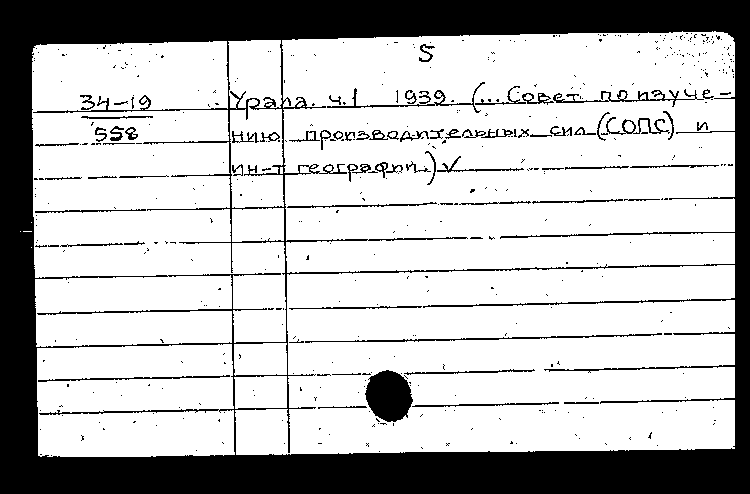 5
34-19 Урала. ч.1 1939. (... Совет по изуче-
558 нию производительных сил (СОПС) и
ин-т географии.) ✓